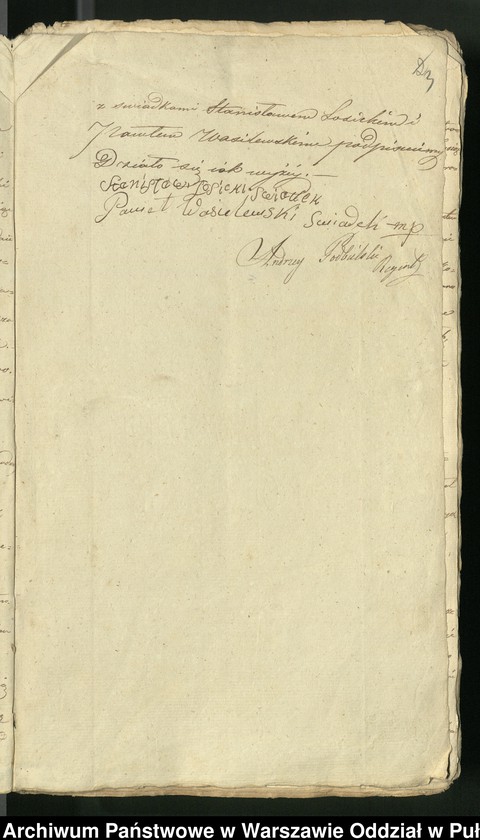 z swiadkami Stanisławem Łosickim i
Pawłem Wasilewskim podpisuiemy
Działo się iak wyżey. —
Stanisław Łosicki Swiadek
Paweł Wasielewski Swiadek mp
Andrzey Podbielski Regent
Archiwum Państwowe w Warszawie Oddział w Puł